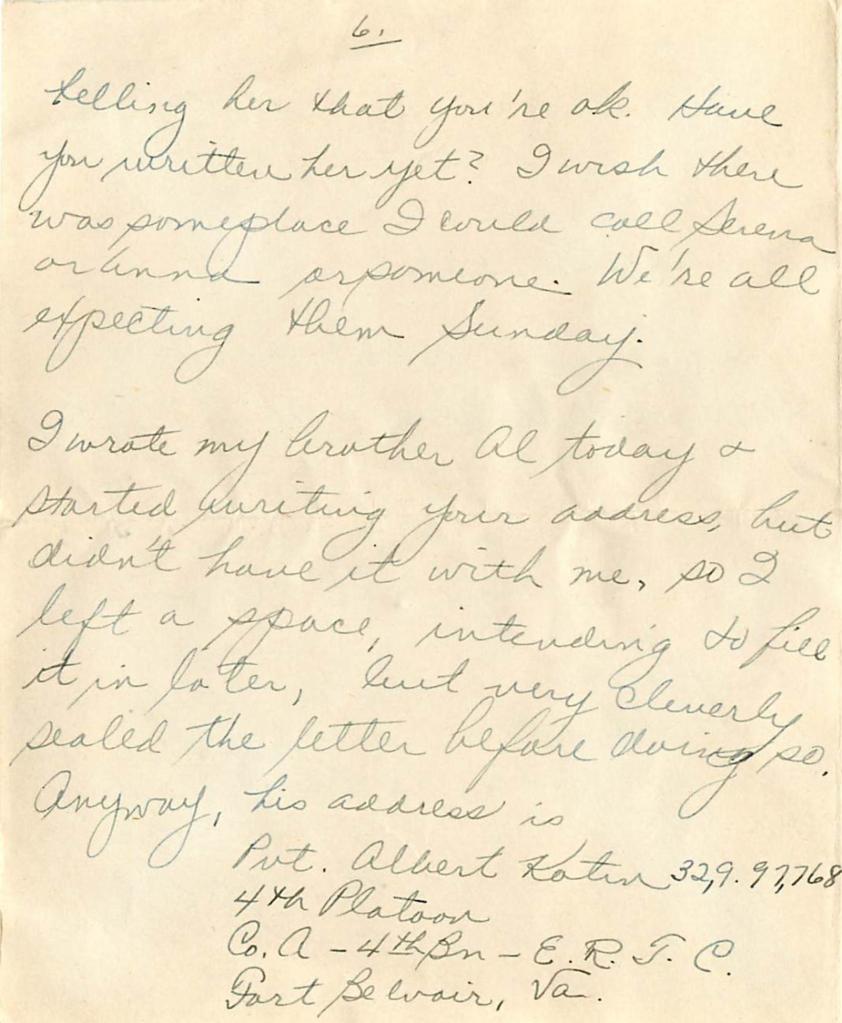 6.
telling her that you're ok. Have
you written her yet? I wish there
was someplace I could call Serena
or Anna or someone. We're all
expecting them Sunday.
I wrote my brother Al today &
started writing your address, but
didn't have it with me, so I
left a space, intending to fill
it in later, but very cleverly
sealed the letter before doing so.
Anyway, his address is
Pvt. Albert Katen 32,9.97,768
4th Platoon
Co. A - 4th Bn - E. R. T. C.
Fort Belvoir, Va.